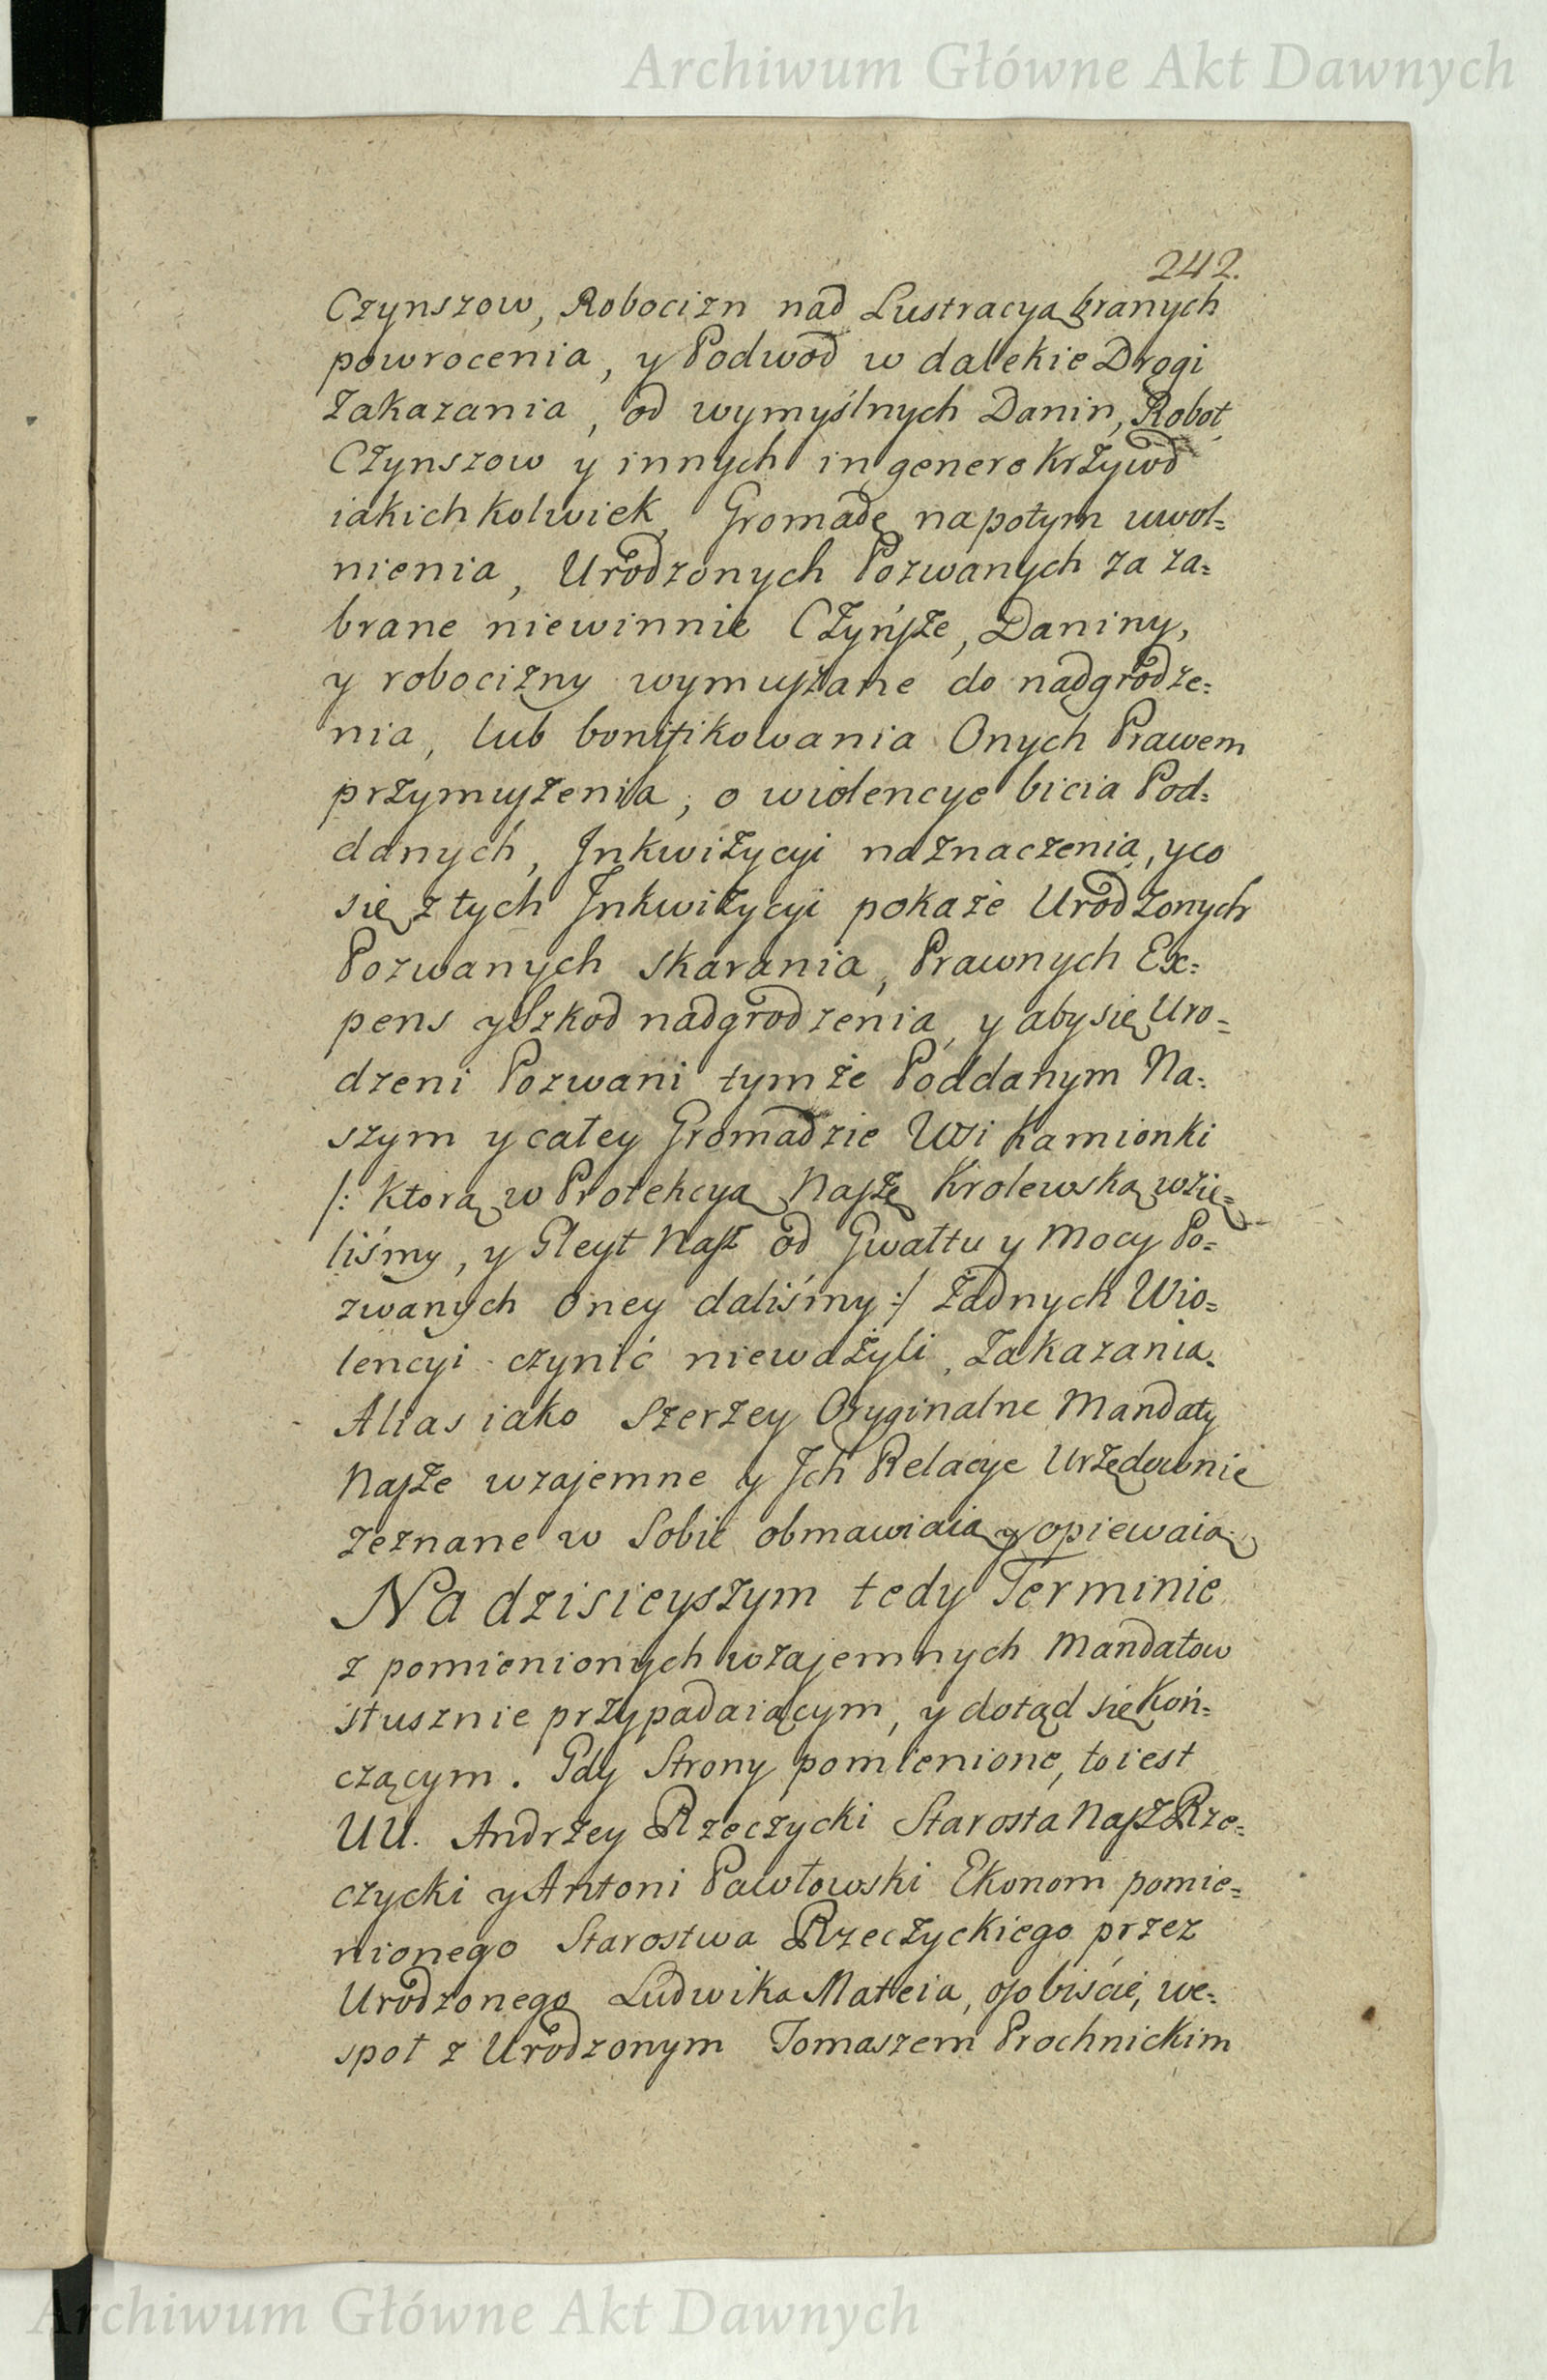 Archiwum Główne Akt Dawnych
242.
Czynszow, Robocizn nad Lustracyą branych
powrocenia, y Podwod w dalekie Drogi
zakazania, od wymyślnych Danin, Robot,
Czynszow y innych in genere krzywd
iakichkolwiek, Gromadę napotym uwol=
nienia, Urodzonych Pozwanych za za=
brane niewinnie Czynſze, Daniny,
y robocizny wymuſzane do nadgrodze=
nia, lub bonifikowania Onych Prawem
przymuſzenia, o wiolencye bicia Pod=
danych, Inkwizycyi naznaczenia, y co
się z tych Inkwizycyi pokaże Urodzonych
Pozwanych skarania, Prawnych Ex=
pens y Szkod nadgrodzenia, y aby się Uro=
dzeni Pozwani tymże Poddanym Na=
szym y całey Gromadzie Wsi Kamionki
/: Ktorą w Protekcyą Naſzę Krolewską wzię=
liśmy, y Gleyt Naſz od Gwałtu y Mocy Po=
zwanych Oney daliśmy :/ Żadnych Wio=
lencyi czynić nieważyli, Zakazania.
Alias iako Szerzey Oryginalne Mandaty
Naſze wzajemne y Ich Relacye Urzędownie
zeznane w Sobie obmawiaią y opiewaią
Na dzisieyszym tedy Terminie
z pomienionych wzajemnych Mandatow
słusznie przypadaiącym, y dotąd się Koń=
czącym. Gdy Strony pomienione, to iest
UU. Andrzey Rzeczycki Starosta Naſz Rze=
czycki y Antoni Pawłowski Ekonom pomie=
nionego Starostwa Rzeczyckiego przez
Urodzonego Ludwika Matteia, oſobiście, we=
społ z Urodzonym Tomaszem Prochnickim
Archiwum Główne Akt Dawnych